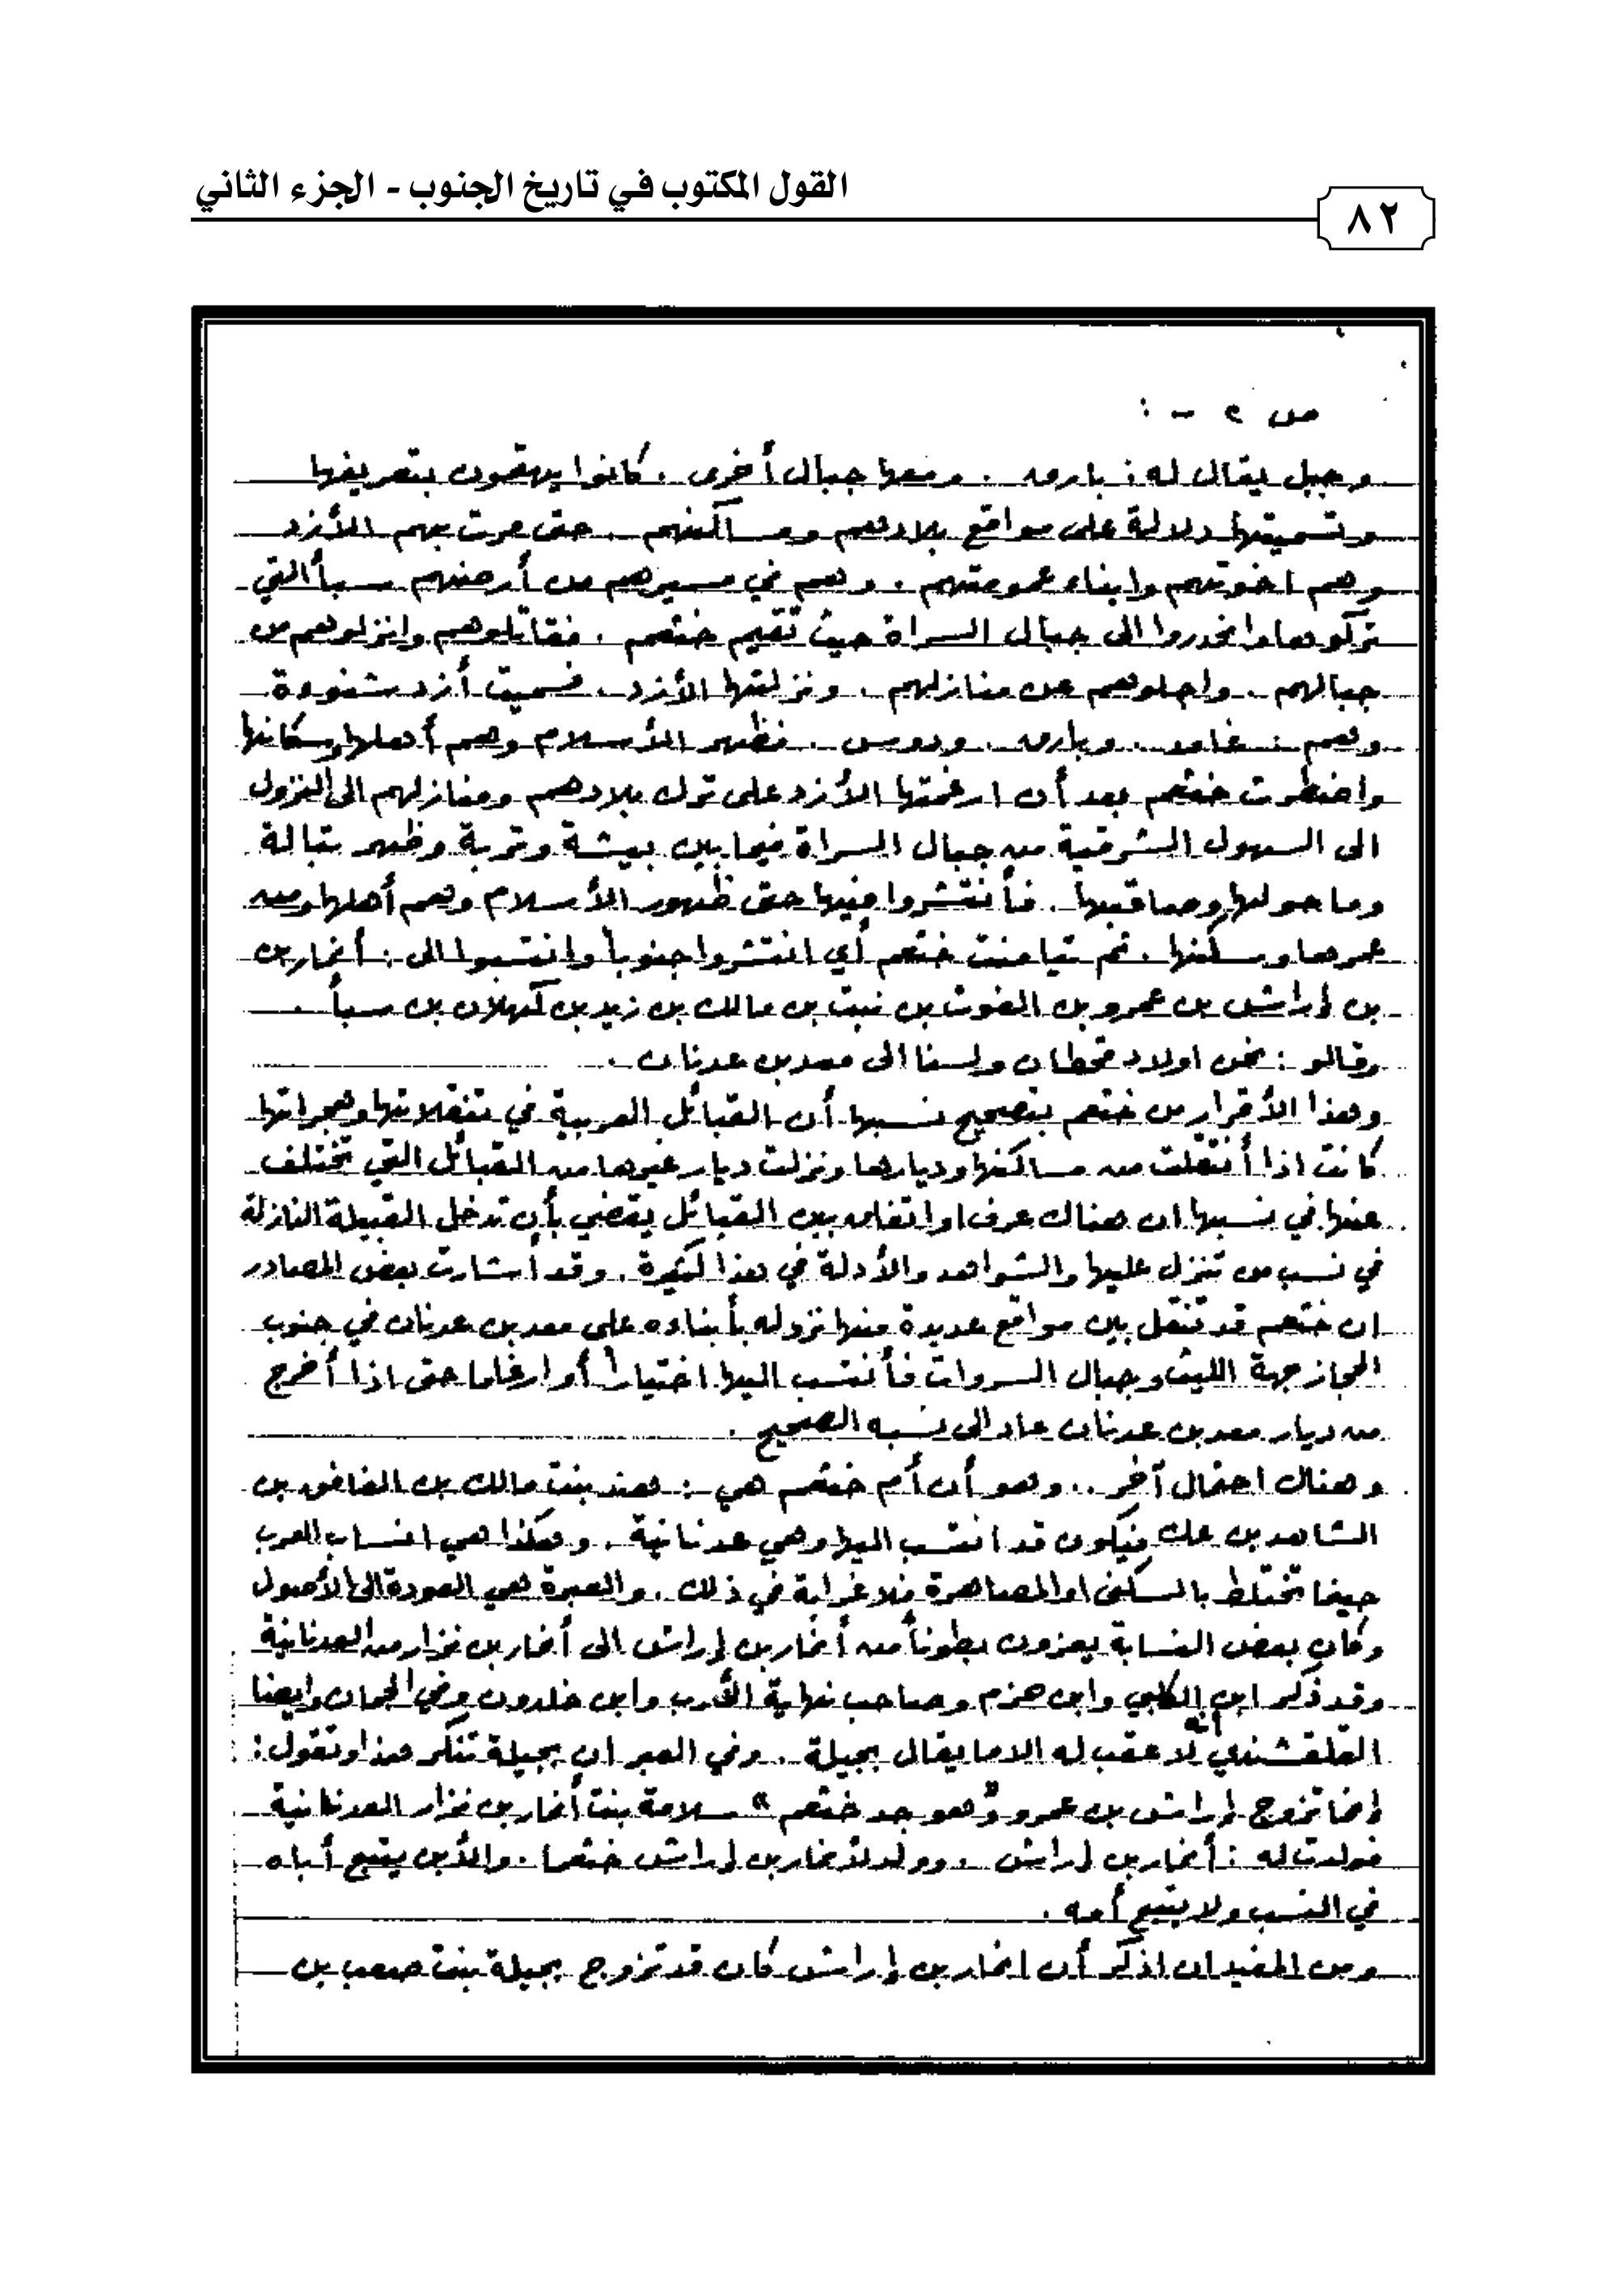 القول المكتوب في تاريخ الجنوب - الجزء الثاني
٨٢
ص ٢ - :
وجبل يقال له : بارق . ومعها جبال أخرى . كانوا يهتمون بتعريفها
وتسميتها دلالة على مواقع بلادهم ومساكنهم . حتى مرت بهم الأزد
وهم اخوتهم وابناء عمومتهم . وهم في مسيرهم من أرضهم سبأ التي
تركوها وانحدروا الى جبال السراة حيث تقيم خثعم . فقاتلوهم وانزلوهم من
جبالهم . واجلوهم عن منازلهم . ونزلتها الأزد . فسميت أزد شنوءة
وهم : غامد . وبارق . ودوس . فظهر الأسلام وهم أهلها وسكانها
واضطرت خثعم بعد أن ارغمتها الأزد على ترك بلادهم ومنازلهم الى النزول
الى السهول الشرقية من جبال السراة فيما بين بيشة وتربة وظهر تبالة
وما حولها وصاقبها . فأنتشروا فيها حتى ظهور الأسلام وهم أهلها ومن
عمرها وسكنها . ثم تيامنت خثعم أي انتشروا جنوباً وانتسبوا الى : أنمار بن
بن إراش بن عمرو بن الغوث بن نبت بن مالك بن زيد بن كهلان بن سبأ .
وقالو : نحن اولاد قحطان ولسنا الى معد بن عدنان .
وهذا الأقرار من خثعم بتصحيح نسبها أن القبائل العربية في تنقلاتها وهجراتها
كانت اذا أنتقلت من مساكنها وديارها ونزلت ديار غيرها من القبائل التي تختلف
عنها في نسبها ان هناك عرف او اتفاق بين القبائل يقضي بأن تدخل القبيلة النازلة
في نسب من تنزل عليها والشواهد والأدلة في هذا كثيرة . وقد أشارت بعض المصادر
ان خثعم قد تنقل بين مواقع عديدة منها نزوله بأبناءه على معد بن عدنان في جنوب
الحجاز جهة الليث وجبال السروات فأنتسب اليها اختياراً أو ارغاما حتى اذا أخرج
من ديار معد بن عدنان عاد الى نسبه الصحيح .
وهناك احتمال آخر .. وهو أن أم خثعم هي : هند بنت مالك بن الغافق بن
الشاهد بن عك فيكون قد انتسب اليها وهي عدنانية . وهكذا هي انساب العرب
حينما تختلط بالسكنى او المصاهرة فلا غرابة في ذلك . والعبرة هي العودة الى الأصول
وكان بعض النسابة يعزون بطوناً من أنمار بن إراش الى أنمار بن نزار من العدنانية
وقد ذكر ابن الكلبي وابن حزم وصاحب نهاية الأرب وابن خلدون وفي الجمان وايضا
القلقشندي أنه لا عقب له الا ما يقال بجيلة . وفي العبر ان بجيلة تنكر هذا وتقول :
إنما تزوج إراش بن عمرو "وهو جد خثعم" سلامة بنت أنمار بن نزار العدنانية
فولدت له : أنمار بن إراش . وولد لأنمار بن إراش خثعما . والأبن يتبع أباه
في النسب ولا يتبع أمه .
ومن المفيد ان اذكر أن انمار بن إراش كان قد تزوج بجيلة بنت صعب بن